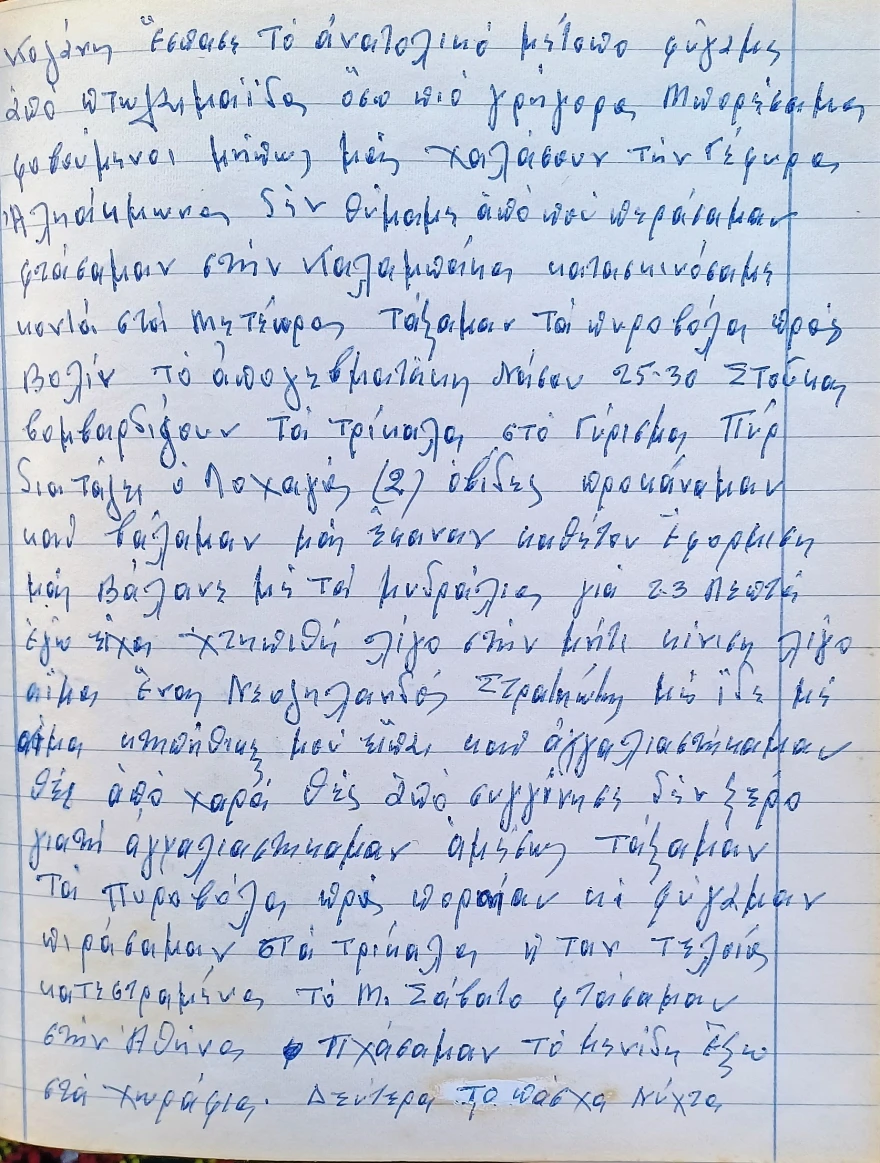 Κοζάνη Ἔσπασε Τό ἀνατολικό μέτοπο φύγαμε
ἀπό πτωλεμαΐδα ὅσο πιό γρήγορα Μπορέσαμε
φοβούμενοι μήπως μᾶς χαλάσουν τήν Γέφυρα
Ἀλιάκμωνα δέν θύμαμε ἀπό ποῦ περάσαμαν
φτάσαμαν στήν Καλαμπάκα κατασκινόσαμε
κοντά στά Μετέωρα Τάξαμαν Τά πυροβόλα πρός
Βολήν τό ἀπογεβματάκη Νάσου 25-30 Στούκας
βομβαρδίζουν Τά τρίκαλα στό Γύρισμα Πύρ
διατάζει ὁ Λοχαγός (2) ὀβίδες προκάναμαν
καί βάλαμαν μᾶς ἔκαναν καθέτον Ἐφόρμιση
μᾶς Βάλανε μέ τά μυδράλια γιά 2-3 Λεπτά
Ἐγώ εἶχα χτηπιθῆ λίγο στήν μήτι κίνιση λίγο
αἷμα Ἕνας Νεοζηλανδός Στρατιώτης μέ ἶδε μέ
αἷμα κτηπήθικες μοῦ εἶπε καί ἀγγαλιαστήκαμαν
θές ἀπό χαρά θές ἀπό συγγίνησε δέν ξέρο
γιατή ἀγγαλιαστήκαμαν ἀμέσως τάξαμαν
Τά Πυροβόλα πρός πορείαν κέ φύγαμαν
πιράσαμαν στά τρίκαλα ἦταν τελοίος
κατεστραμένα τό Μ. Σάβατο φτάσαμαν
στήν Ἀθήνα Πχάσαμαν τό Μενίδη Ἔξω
στά χωράφια. Δευτέρα το πάσχα Νύχτα